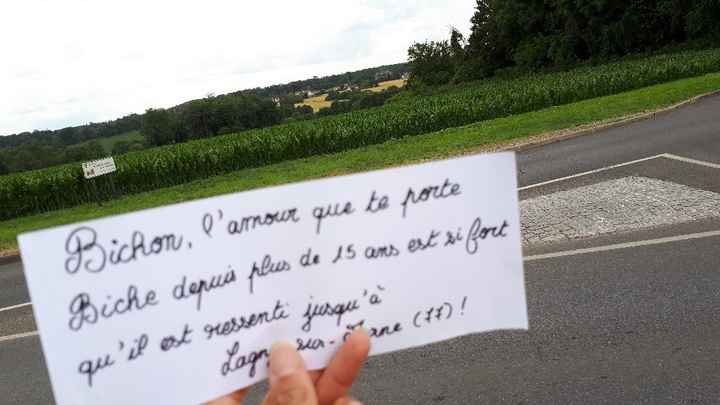 Bichon, l'amour que te porte
Biche depuis plus de 15 ans est si fort
qu'il est ressenti jusqu'à
sur- (77) !